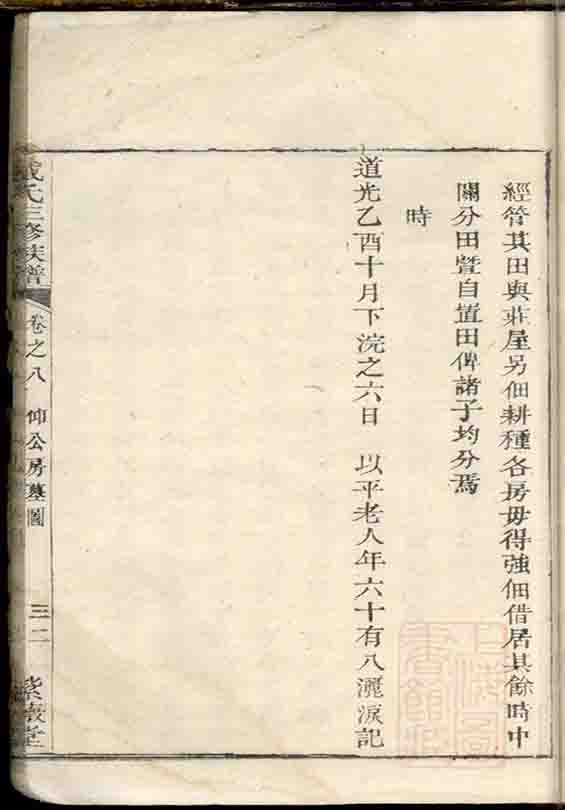 經管其田與莊屋另佃耕種各房毋得強佃借居其餘時中
鬮分田暨自置田俾諸子均分焉
時
道光乙酉十月下浣之六日　以平老人年六十有八灑淚記
氏三修族譜
卷之八　仰公房墓圖
三二
紫
堂
上海圖書館藏